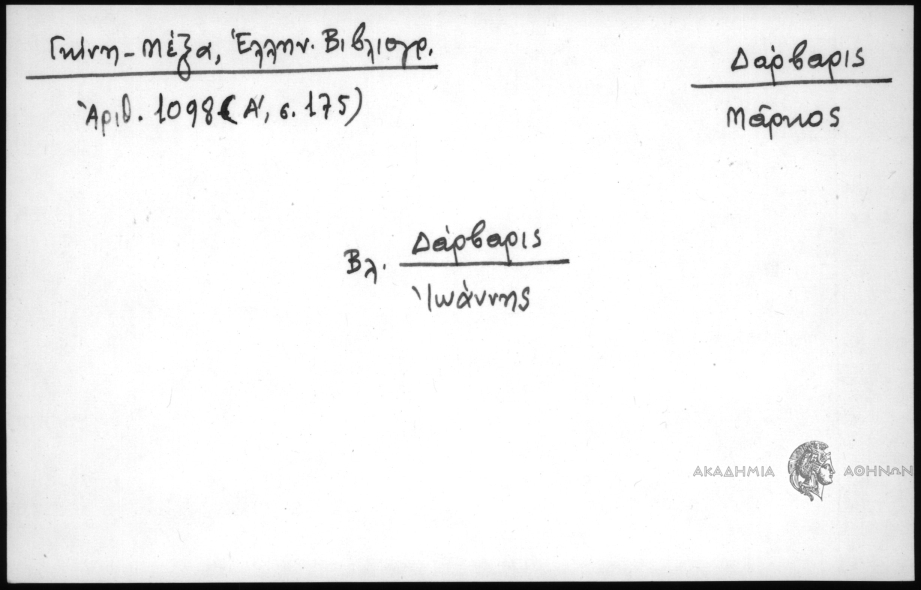 Γκίνη - Μέξα, Ἑλλην. Βιβλιογρ.
Ἀριθ. 1098 (Α', σ. 175)
Δάρβαρις
Μάρκος
Βλ. Δάρβαρις
Ἰωάννης
ΑΚΑΔΗΜΙΑ ΑΘΗΝΩΝ